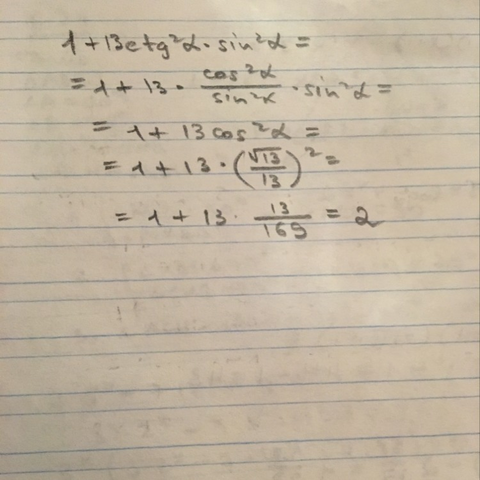 1 + 13ctg²α · sin²α =
= 1 + 13 · cos²α/sin²α · sin²α =
= 1 + 13 cos²α =
= 1 + 13 · (√13/13)² =
= 1 + 13 · 13/169 = 2